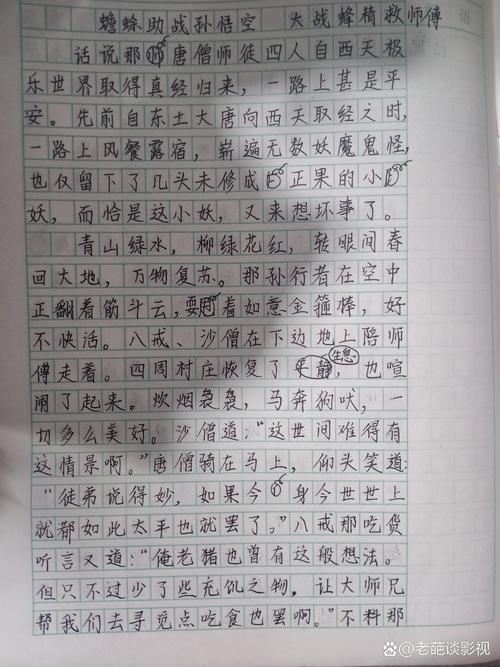 蟾蜍助战孙悟空 大战蜂精救师傅
话说那唐僧师徒四人自西天极
乐世界取得真经归来，一路上甚是平
安。先前自东土大唐向西天取经之时，
一路上风餐露宿，崭遍无数妖魔鬼怪，
也仅留下了几头未修成正果的小
妖，而恰是这小妖，又来想坏事了。
青山绿水，柳绿花红，转眼间春
回大地，万物复苏。那孙行者在空中
正翻着筋斗云，耍着如意金箍棒，好
不快活。八戒、沙僧在下边地上陪师
傅走着。四周村庄恢复了生息，也喧
闹了起来。炊烟袅袅，马奔狗吠，一
切多么美好。沙僧道：“这世间难得有
这情景啊。”唐僧骑在马上，仰头笑道：
“徒弟说得妙，如果今身今世世上
就都如此太平也就罢了。”八戒那吃货
听言又道：“俺老猪也曾有这般想法。
但只不过少了些充饥之物，让大师兄
帮我们去寻觅点吃食也罢啊。”不料那
@老葩谈影视